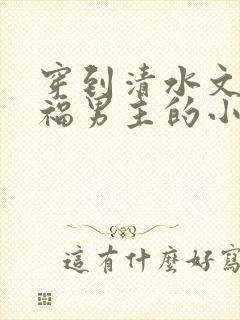 穿到清水文
福男主的小
這有什麼好寫